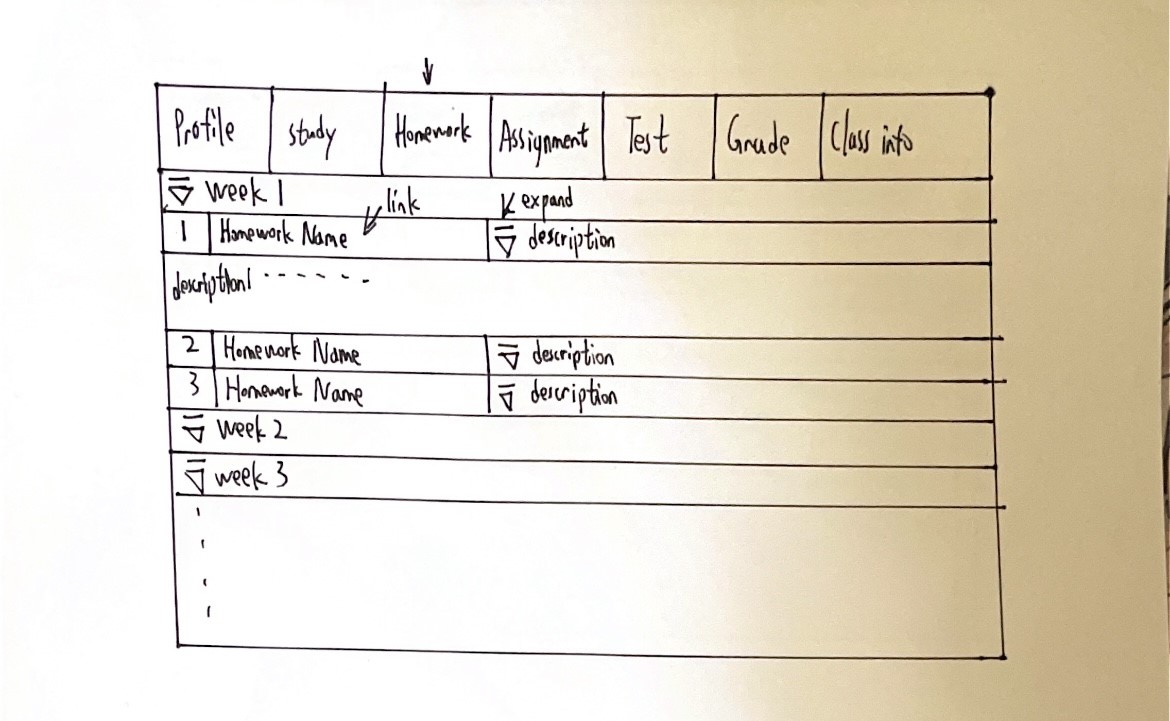 Profile study Homework Assignment Test Grade Class info
week 1
link
expand
1 Homework Name description
description1 - - - - - -
2 Homework Name description
3 Homework Name description
week 2
week 3